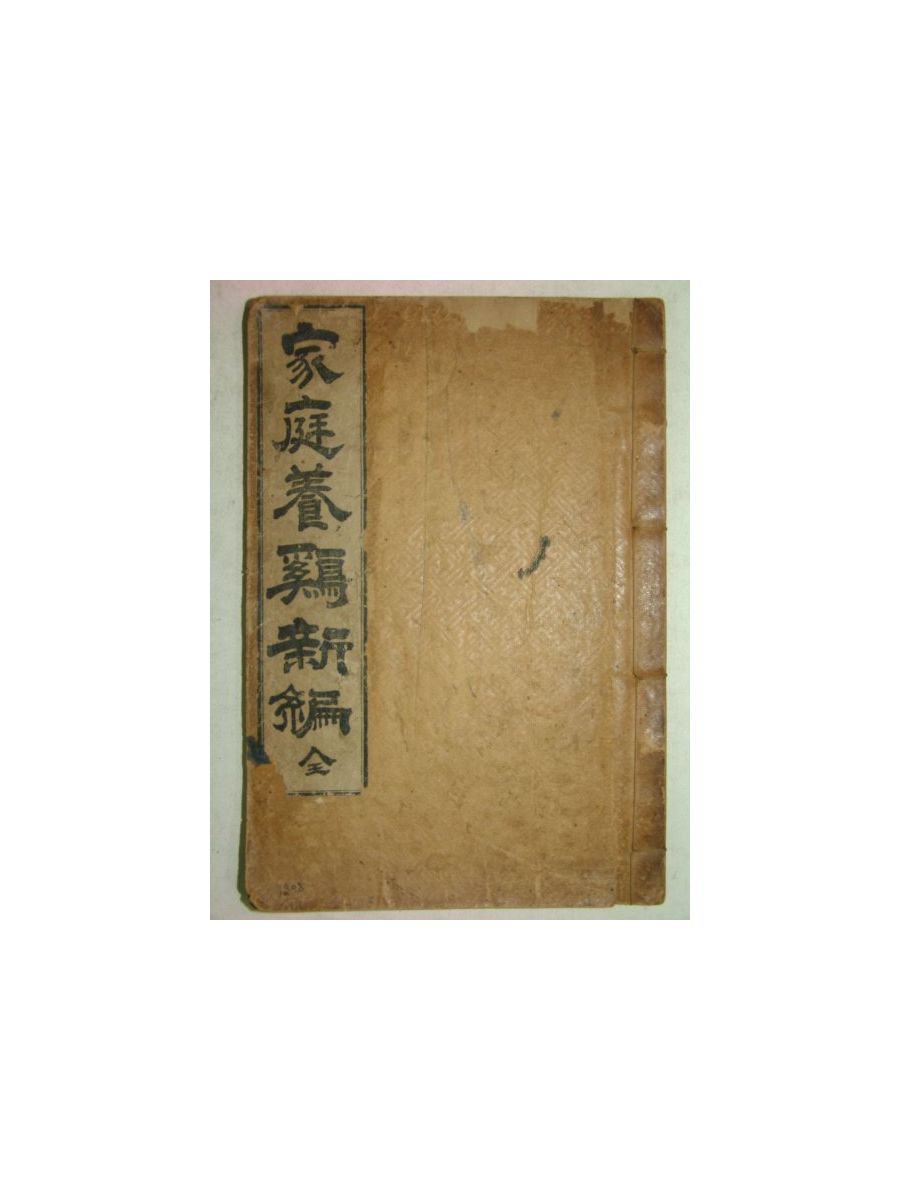 家庭養鷄新編全
1908